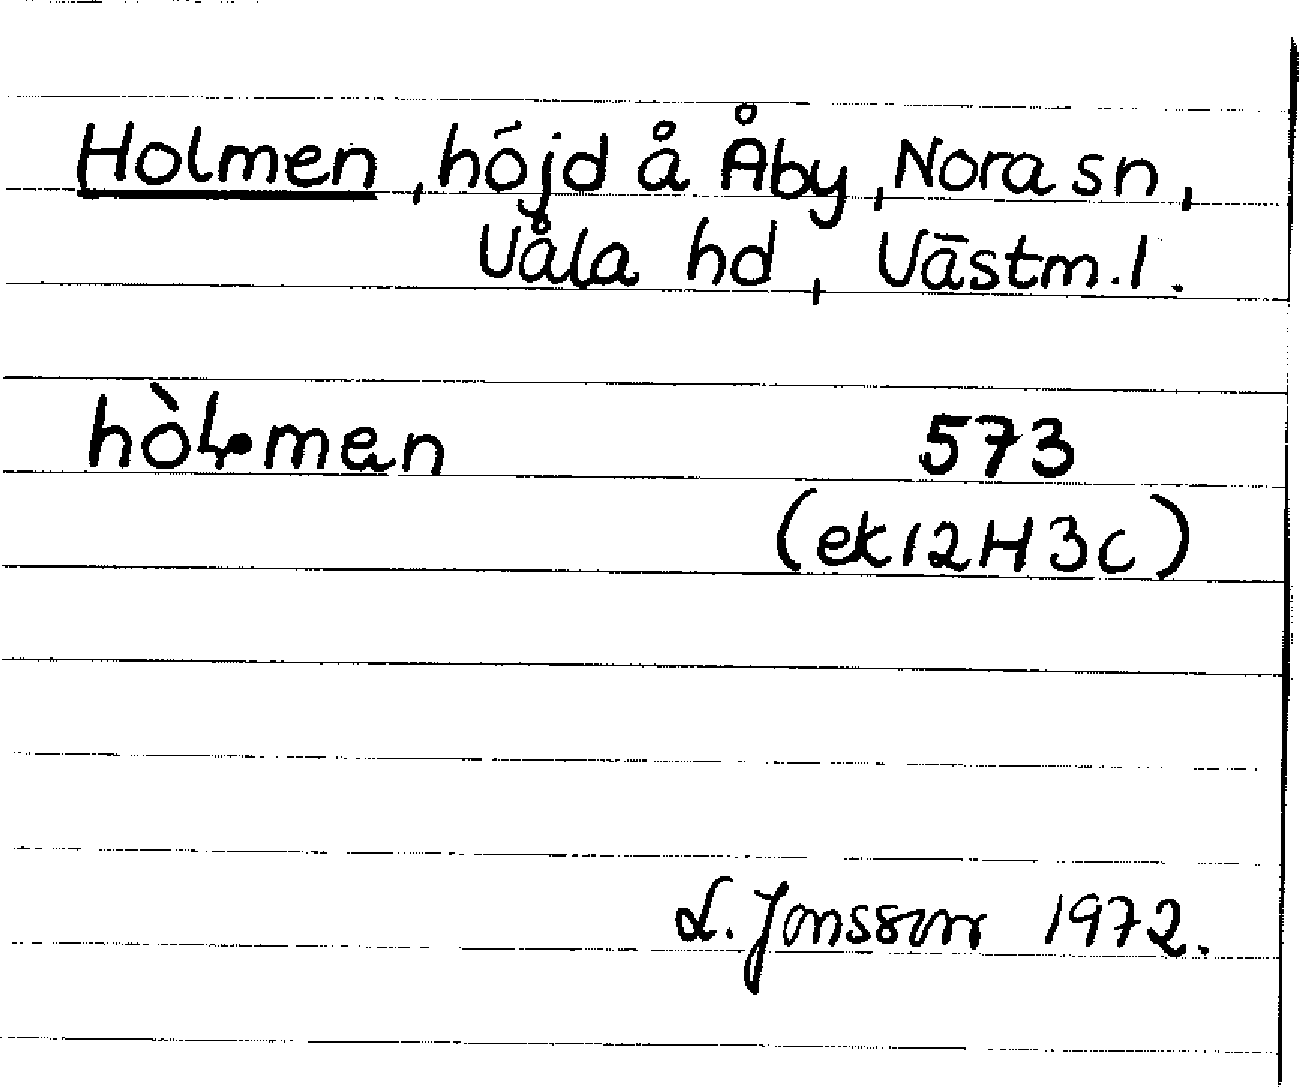 Holmen, höjd å Åby, Nora sn,
Våla hd, Västm. l.
573
(ek 12H3c)
L. Jonsson 1972.